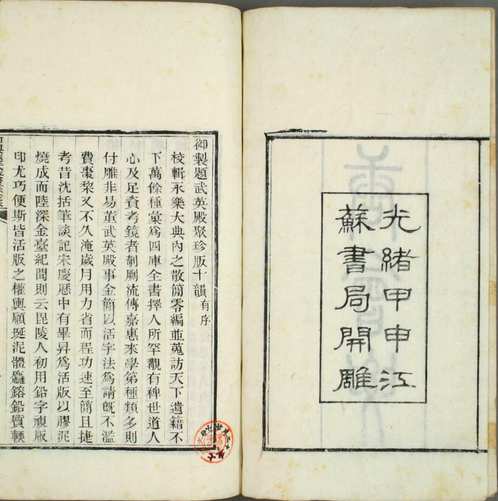 光緒甲申江
蘇書局開雕
御製題武英殿聚珍版十韻有序
校輯永樂大典內之散簡零編並蒐訪天下遺籍不
下萬餘種彙為四庫全書擇人所罕覯有裨世道人
心及足資考鏡者剞劂流傳嘉惠來學第種類多則
付雕非易董武英殿事金簡以活字法為請既不濫
費棗棃又不久淹歲月用力省而程功速至簡且捷
考昔沈括筆談記宋慶厯中有畢昇為活版以膠泥
燒成而陸深金臺紀聞則云毘陵人初用鉛字視版
印尤巧便斯皆活版之權輿顧埏泥體麤鎔鉛質輭